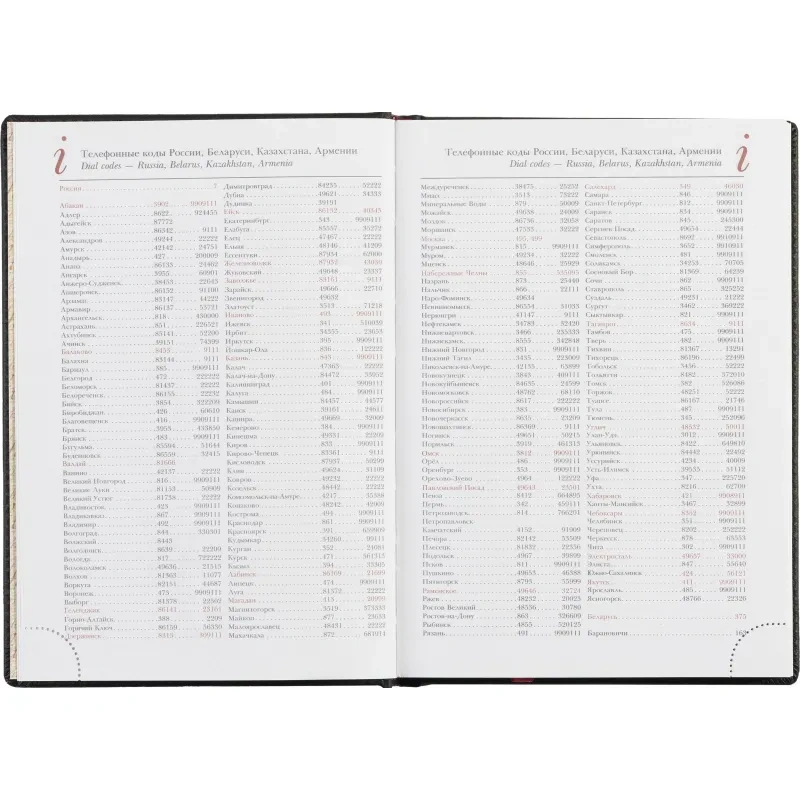 i
Телефонные коды России, Беларуси, Казахстана, Армении
Dial codes — Russia, Belarus, Kazakhstan, Armenia
Россия 7
Абакан 3902 9909111
Адлер 8622 324455
Адыгейск 87772
Азов 86342 9111
Александров 49244 22222
Амурск 42142 24751
Анадырь 427 200009
Анапа 86133 24462
Ангарск 3955 60901
Анжеро-Судженск 38453 22643
Апшеронск 86152 91100
Арзамас 83147 44222
Армавир 86137 53721
Архангельск 818 450000
Астрахань 851 226521
Ахтубинск 85141 52200
Ачинск 39151 74399
Балаково 8453 9111
Балахна 83144 9111
Барнаул 385 9909111
Белгород 472 222222
Беломорск 81437 22222
Белореченск 86155 22232
Бийск 3854 222209
Биробиджан 426 60610
Благовещенск 416 9909111
Братск 3953 433850
Брянск 483 9909111
Бугульма 85594 51644
Буденновск 86559 32415
Валдай 81666
Вышний 42137 22222
Великий Новгород 816 9909111
Великие Луки 81153 50909
Великий Устюг 81738 22222
Владивосток 423 9909111
Владикавказ 867 9909111
Владимир 492 9909111
Волгоград 844 330301
Волжский 8443
Волгодонск 8639 22200
Вологда 817 722222
Волоколамск 49636 21515
Волхов 81363 11077
Воркута 82151 44687
Воронеж 473 9909111
Выборг 81378 22502
Геленджик 86141 23101
Горно-Алтайск 388 2209
Горячий Ключ 86159 36330
Дзержинск 8313 309111
Димитровград 84235 52222
Дубна 49621 54333
Дудинка 39191
Ейск 86132 40343
Екатеринбург 343 9909111
Елабуга 85557 35272
Елец 47467 22222
Ельня 48146 41209
Ессентуки 87934 67000
Железноводск 87932 43030
Жуковский 49648 23337
Заволжье 83161 9111
Зарайск 49666 22710
Звенигород 49632
Златоуст 3513 71218
Иваново 493 9909111
Ижевск 341 510039
Ирбит 34355 23653
Иркутск 395 9909111
Йошкар-Ола 836 122222
Казань 843 9909111
Калач 47363 22222
Калач-на-Дону 84472 33952
Калининград 401 9909111
Калуга 484 9909111
Камышин 84457 44577
Канск 39161 24611
Кашира 49669 32000
Кемерово 384 9909111
Кинешма 49331 22209
Киров 833 9909111
Кирово-Чепецк 83361 9111
Кисловодск 87937 50299
Клин 49624 31109
Ковров 49232 22222
Козельск 48442 22222
Комсомольск-на-Амуре 4217 45388
Конаково 48242 42009
Кострома 494 9909111
Краснодар 861 9909111
Красноярск 391 659009
Кудымкар 34260 99111
Курган 352 24981
Курск 471 561313
Кызыл 394 33365
Лабинск 86169 21699
Липецк 474 9909111
Луга 81372 22222
Магадан 413 20999
Магнитогорск 3519 373333
Майкоп 877 23633
Малоярославец 48431 22222
Махачкала 872 681914
i
Телефонные коды России, Беларуси, Казахстана, Армении
Dial codes — Russia, Belarus, Kazakhstan, Armenia
Междуреченск 38475 25252
Миасс 3513 73222
Минеральные Воды 879 50009
Можайск 49638 24009
Моздок 86736 32058
Моршанск 47533 22222
Москва 495, 499
Мурманск 815 9909111
Муром 49234 32222
Мценск 48646 25929
Набережные Челны 855 525095
Назрань 873 25440
Нальчик 866 22111
Наро-Фоминск 49634
Невинномысск 86554 31033
Нерюнгри 41147 9111
Нефтекамск 34783 32420
Нижневартовск 3466 235333
Нижнекамск 8555 342848
Нижний Новгород 831 9909111
Нижний Тагил 3435 223009
Николаевск-на-Амуре 42135 65899
Новокузнецк 3843 469111
Новокуйбышевск 84635 24599
Новомосковск 48762 68110
Новороссийск 8617 622222
Новосибирск 383 9909111
Новочеркасск 8635 23209
Новошахтинск 86369 9111
Ногинск 49651 50215
Норильск 3919 461313
Омск 3812 9909111
Орёл 486 9909111
Оренбург 353 9909111
Орехово-Зуево 4964 122222
Павловский Посад 49643 23501
Пенза 8412 604895
Пермь 342 459111
Петрозаводск 814 766291
Петропавловск
Камчатский 4152 91009
Печора 82142 53509
Плесецк 81832 22356
Подольск 4967 39899
Псков 811 9909111
Пушкино 49653 46388
Пятигорск 8793 35999
Раменское 49646 32724
Ржев 48232 20023
Ростов Великий 48536 30780
Ростов-на-Дону 863 326609
Рыбинск 4855 520125
Рязань 491 9909111
Салехард 349 46030
Самара 846 9909111
Санкт-Петербург 812 9909111
Саранск 834 9909111
Саратов 845 243700
Сергиев Посад 49654 22444
Севастополь 8692 9910911
Симферополь 3652 9910911
Смоленск 481 9909111
Соликамск 34253 70705
Сосновый Бор 81369 64239
Сочи 862 9909111
Ставрополь 865 325252
Суздаль 49231 21222
Сургут 3462 369222
Сыктывкар 821 9909111
Таганрог 8634 9111
Тамбов 475 9909111
Тверь 482 9909111
Тихвин 81367 13291
Тихорецк 86190 22499
Тобольск 3456 52222
Тольятти 8482 372010
Томск 382 526080
Торжок 48251 52222
Туапсе 86167 21746
Тула 487 9909111
Тюмень 345 252096
Углич 48532 50011
Улан-Удэ 3012 9909111
Ульяновск 8422 649810
Урюпинск 84442 22402
Уссурийск 4234 40009
Усть-Илимск 39535 31112
Уфа 347 225720
Ухта 8216 62709
Хабаровск 421 9908911
Ханты-Мансийск 3467 32899
Чебоксары 8352 9909111
Челябинск 351 9909111
Череповец 8202 252222
Черкесск 878 65553
Чита 302 9909111
Электросталь 49657 33000
Элиста 847 55640
Южно-Сахалинск 424 56121
Якутск 411 9909111
Ярославль 485 9909111
Ясногорск 48766 22326
Беларусь 375
Барановичи 163